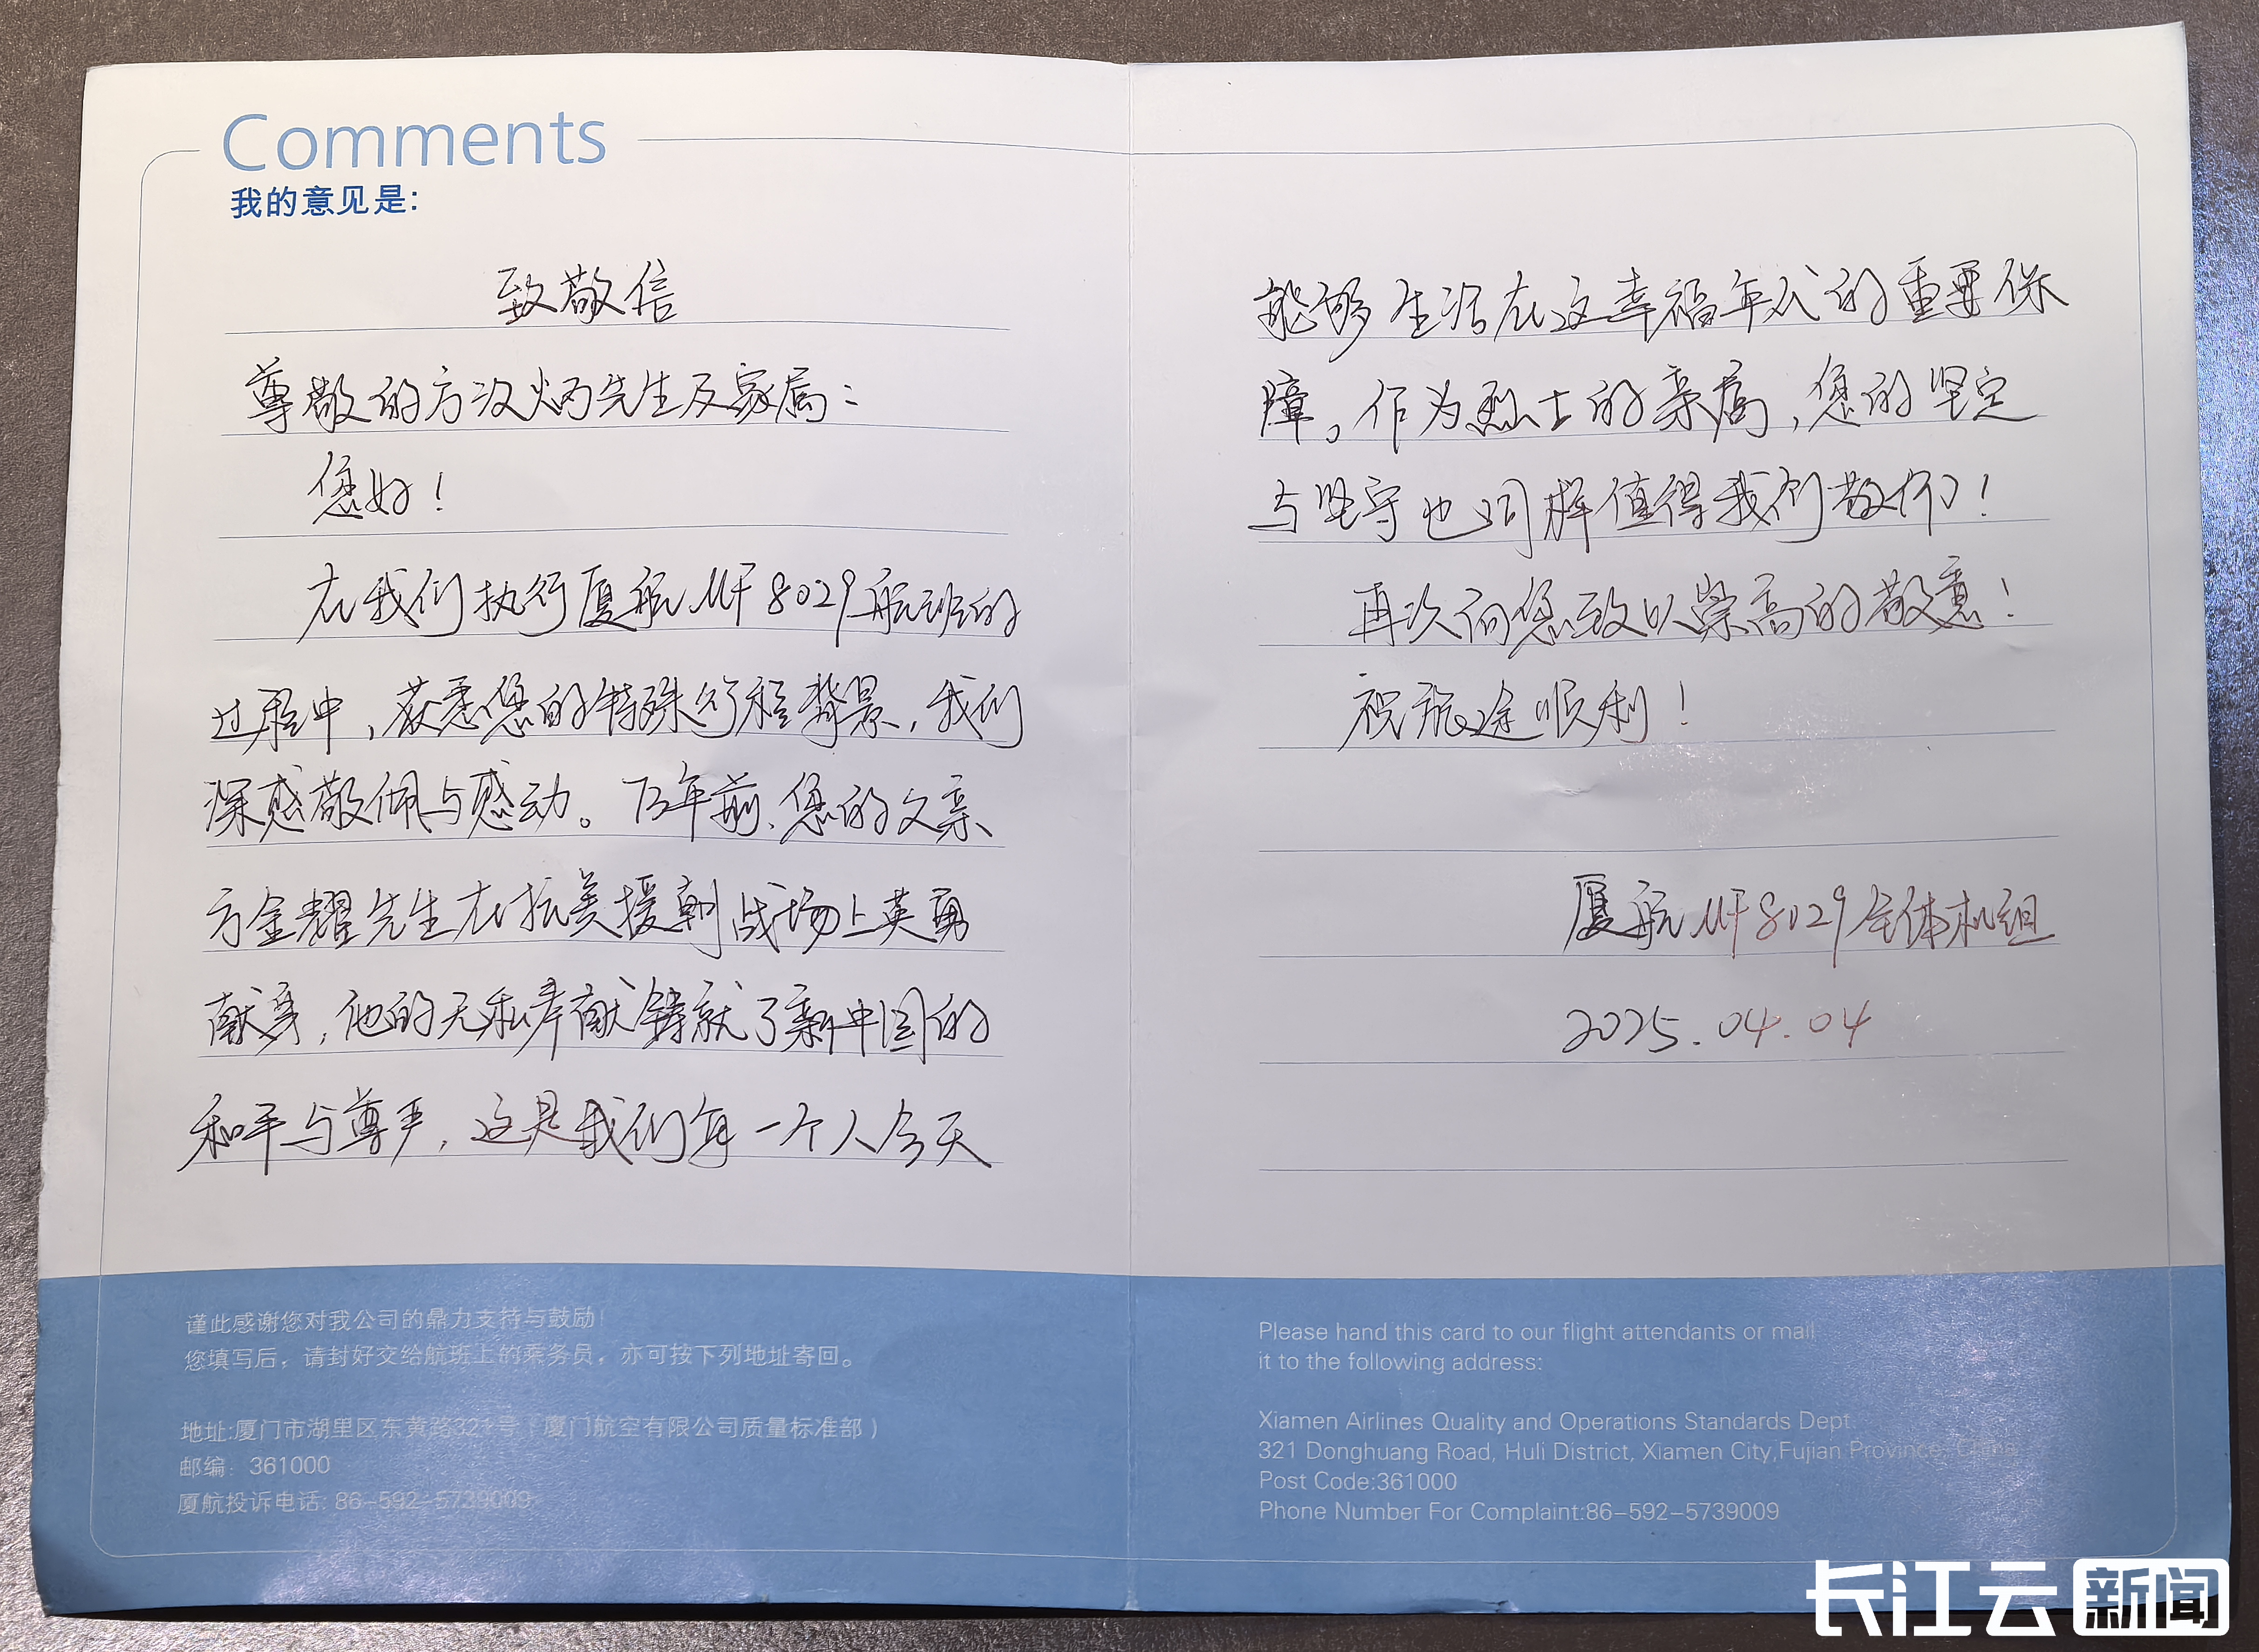 Comments
我的意见是:
致敬信
尊敬的方汉炳先生及家属：
您好！
在我们执行厦航MF8029航班的
过程中，获悉您的特殊行程背景，我们
深感敬佩与感动。73年前、您的父亲
方金耀先生在抗美援朝战场上英勇
献身，他的无私奉献铸就了新中国的
和平与尊严，这是我们每一个人今天
谨此感谢您对我公司的鼎力支持与鼓励!
您填写后，请封好交给航班上的乘务员，亦可按下列地址寄回。
地址:厦门市湖里区东黄路321号（厦门航空有限公司质量标准部）
邮编：361000
厦航投诉电话: 86-592-5739009
能够生活在这幸福年代的重要保
障。作为烈士的亲属，您的坚定
与坚守也同样值得我们敬仰！
再次向您致以崇高的敬意！
祝旅途顺利！
厦航MF8029全体机组
2025.04.04
Please hand this card to our flight attendants or mail
it to the following address:
Xiamen Airlines Quality and Operations Standards Dept.
321 Donghuang Road, Huli District, Xiamen City,Fujian Province, China
Post Code:361000
Phone Number For Complaint:86-592-5739009
长江云新闻